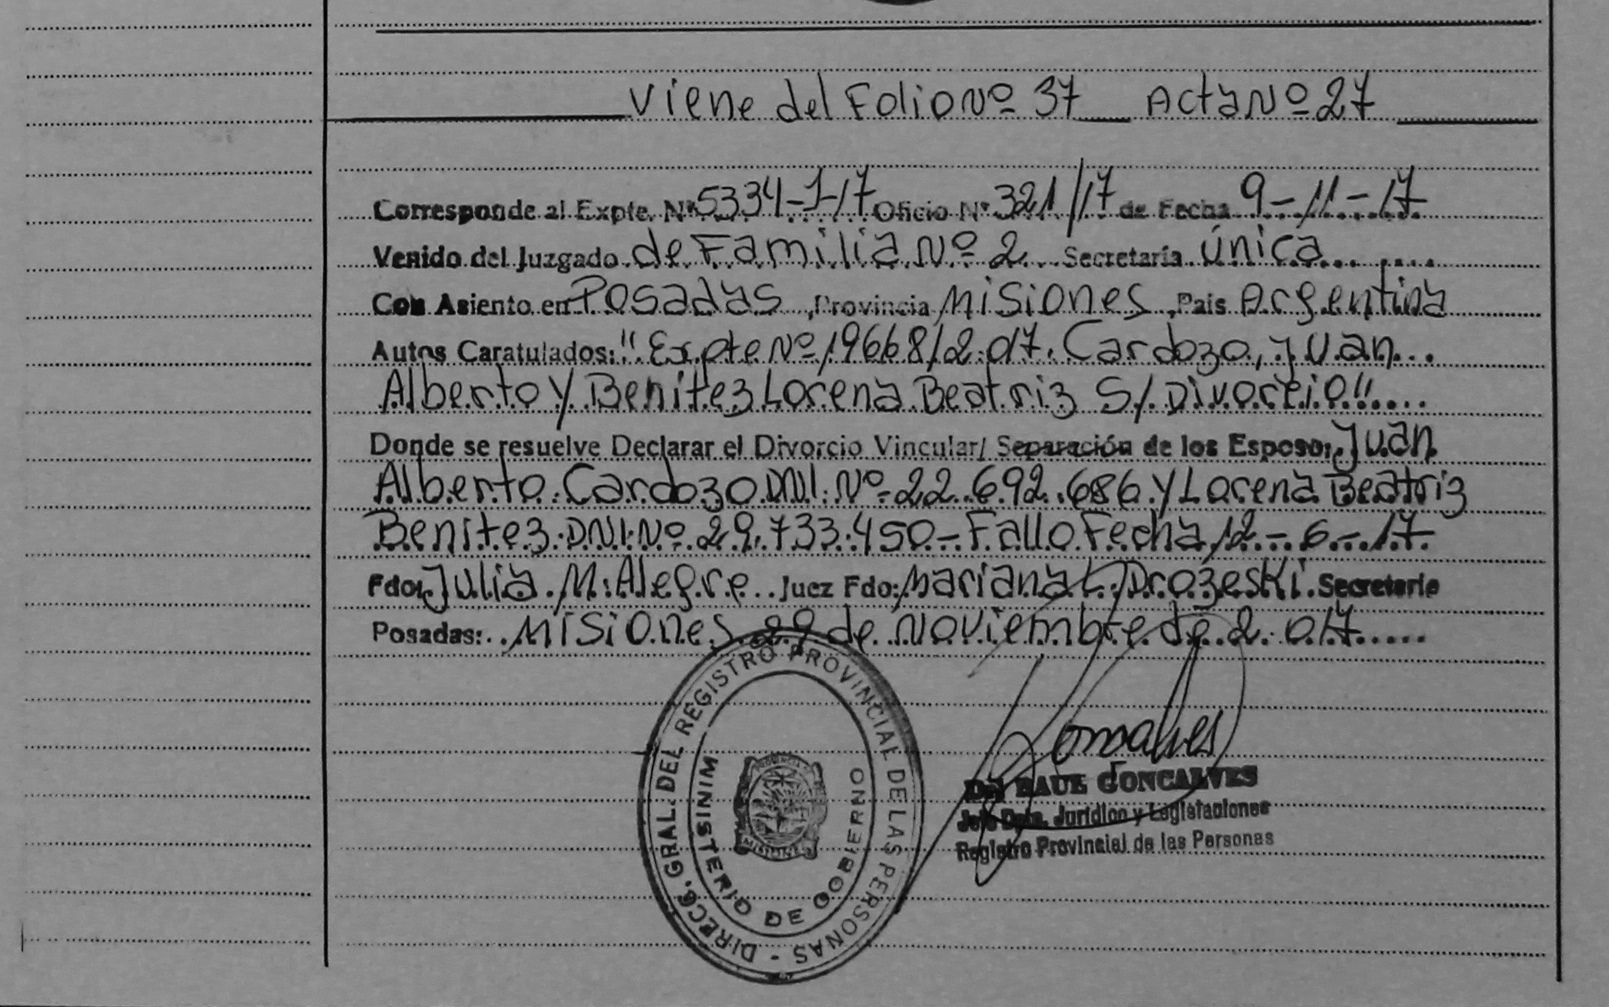 Viene del Folio Nº 37 Acta Nº 27
Corresponde al Expte. Nº 5334-J-17 Oficio Nº 321/17 de Fecha 9-11-17
Venido del Juzgado de Familia Nº 2 Secretaría Única
Con Asiento en Posadas, Provincia Misiones, País Argentina
Autos Caratulados: "Expte Nº 19668/2.017. Cardozo, Juan
Alberto y Benitez Lorena Beatriz S/ Divorcio"
Donde se resuelve Declarar el Divorcio Vincular/ Separación de los Esposo, Juan
Alberto Cardozo DNI. Nº 22.692.686 y Lorena Beatriz
Benitez. DNI. Nº 29.733.450 - Fallo Fecha 12-6-17.
Fdo: Julia M. Alegre Juez Fdo: Mariana L. Drozeski Secretario
Posadas: Misiones, 29 de Noviembre de 2.017
DIRECC. GRAL. DEL REGISTRO PROVINCIAL DE LAS PERSONAS -
MINISTERIO DE GOBIERNO
MISIONES
Goncalves
RAUL GONCALVES
Jefe Dpto. Jurídico y Legislaciones
Registro Provincial de las Personas